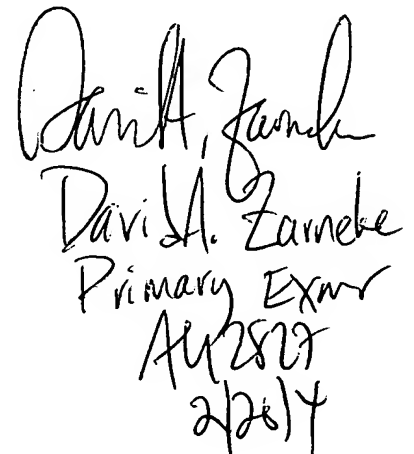 David A. Zarneke
David A. Zarneke
Primary Exmr
AU 2827
2/20/4